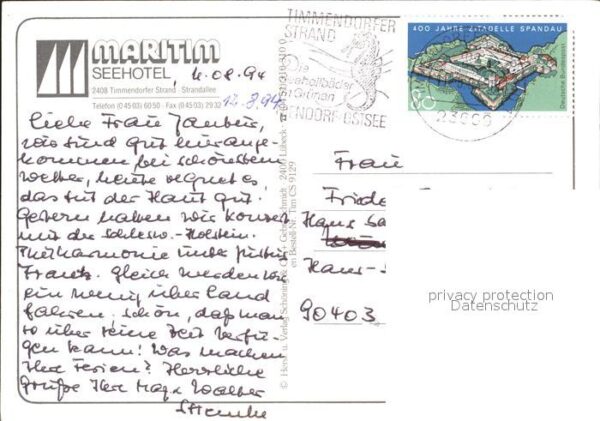 MARITIM
SEEHOTEL
2408 Timmendorfer Strand · Strandallee
Telefon (04503) 6050 · Fax (04503) 2932
4.08.94
12.8.94
Liebe Frau
wir sind gut hier ange-
kommen bei schönstem
Wetter, heute regnet es,
das tut der Haut gut.
Gestern haben wir Konzert
mit der Schlesw.-Holstein.
Philharmonie unter Justus
Frantz. Gleich werden wir
ein wenig über Land
fahren. Schön, daß man
so über seine Zeit verfü-
gen kann! Was machen
Ihre Ferien? Herzliche
Grüße Ihr Max Walter
TIMMENDORFER
STRAND
TIMMENDORF-OSTSEE
23669
400 JAHRE ZITADELLE SPANDAU
Deutsche Bundespost
80
Frau
Friede
Hans Sa
Hans-
90403
privacy protection
Datenschutz